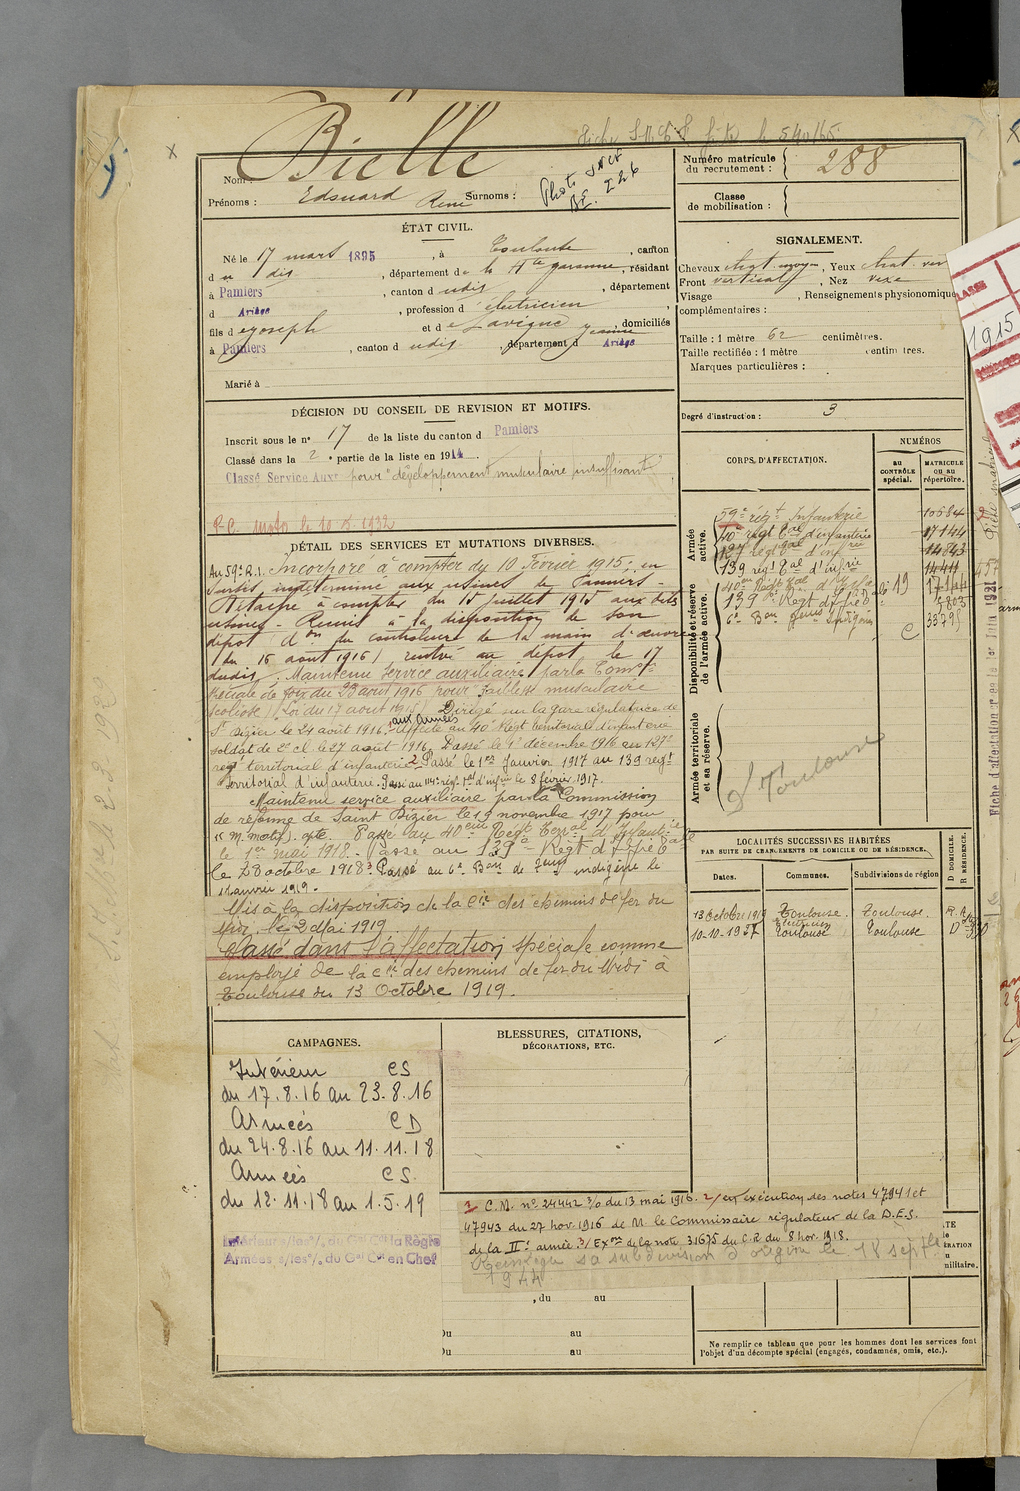 Bielle
Nom :
Prénoms : Edouard René Surnoms :
Photo SNCF
Numéro matricule du recrutement : 288
Classe de mobilisation :
ÉTAT CIVIL.
Né le 17 mars 1895, à Toulouse, canton
d u dis, département de la Hte garonne, résidant
à Pamiers, canton d udis, département
d Ariège, profession d électricien,
fils d e Joseph et de Lavigne Jeanne, domiciliés
à Pamiers, canton d udis, département d Ariège
Marié à
SIGNALEMENT.
Cheveux chat. moyen, Yeux chat. ver
Front vertical, Nez vexe
Visage , Renseignements physionomique
complémentaires :
Taille : 1 mètre 62 centimètres.
Taille rectifiée : 1 mètre centimètres.
Marques particulières :
Degré d'instruction : 3
DÉCISION DU CONSEIL DE REVISION ET MOTIFS.
Inscrit sous le n° 17 de la liste du canton d Pamiers
Classé dans la 2e partie de la liste en 1914.
Classé Service Auxre pour "développement musculaire insuffisant"
P.C. moto le 10.5.1932
DÉTAIL DES SERVICES ET MUTATIONS DIVERSES.
Au 59e R.I. Incorporé à compter du 10 Février 1915; en
sursis indéterminé aux usines de Pamiers-
à compter du 15 juillet 1915 aux dits
usines - Remis à la disposition de son
dépôt (don du controleur de la main d'œuvre
du 16 août 1916), rentré au dépôt le 17
dudit. Maintenu service auxiliaire par la Comon
Spéciale de Foix du 23 août 1916 pour faiblesse musculaire
scoliose (Loi du 17 août 1915) Dirigé sur la gare régulatrice de
St Dizier le 24 août 1916 aux armées. Affecté au 40e Régt territorial d'infanterie
soldat de 2e cl. le 27 août 1916. Passé le 1er décembre 1916 au 127e
regt territorial d'infanterie 2 Passé le 1er Janvier 1917 au 139 regt
territorial d'infanterie. Passé au 114e régt Tal d'infrie le 8 février 1917.
Maintenu service auxiliaire par la Commission
de réforme de Saint Dizier le 19 novembre 1917 pour
Passé au 40ème Regt Teral d'Infantie
le 1er mai 1918. - Passé au 139e Régt d'Infrie Tale
le 28 octobre 1918 3 Passé au 6e Bon de jeuns indigène le
1 Janvier 1919.
Mis à la disposition de la Cie des chemins de fer du
Midi, le 2 Mai 1919.
Classé dans l'affectation spéciale comme
employé de la Cie des chemins de fer du Midi à
Toulouse du 13 Octobre 1919.
CORPS D'AFFECTATION.
NUMÉROS
au CONTRÔLE spécial.
MATRICULE ou au répertoire.
Armée active.
59e régt Infanterie 10584
40e régt Tal d'infanterie 17144
127 regt Tal d'infrie 14843
139 regt Tal d'infrie 14411
Disponibilité et réserve de l'armée active.
40em Regt Tal d'Infie 17144
139e Regt d'Infrie 5803
6e Bon jeuns Indigènes 33795
Armée territoriale et sa réserve.
Toulouse
LOCALITÉS SUCCESSIVES HABITÉES
PAR SUITE DE CHANGEMENTS DE DOMICILE OU DE RÉSIDENCE.
Dates. Communes. Subdivisions de région D DOMICILE. R RÉSIDENCE.
13 Octobre 1919 Toulouse. Toulouse. R.
10-10-1937 Toulouse Toulouse D
CAMPAGNES.
Intérieur CS
du 17.8.16 au 23.8.16
Armées CD
du 24.8.16 au 11.11.18
Armées CS.
du 12.11.18 au 1.5.19
BLESSURES, CITATIONS,
DÉCORATIONS, ETC.
1 C.M. n° 24442 3/0 du 13 mai 1916. 2/ en exécution des notes 47941 et
47943 du 27 nov. 1916 de M. le Commissaire régulateur de la D.E.S.
de la IIe armée. 3/ Exon de la note 31675 du C.R. du 8 nov. 1918.
Réintègre sa subdivision d'origine le 18 septbre
1944
, du au
Du au
Du au
Ne remplir ce tableau que pour les hommes dont les services font
l'objet d'un décompte spécial (engagés, condamnés, omis, etc.).
CLASSE
1915